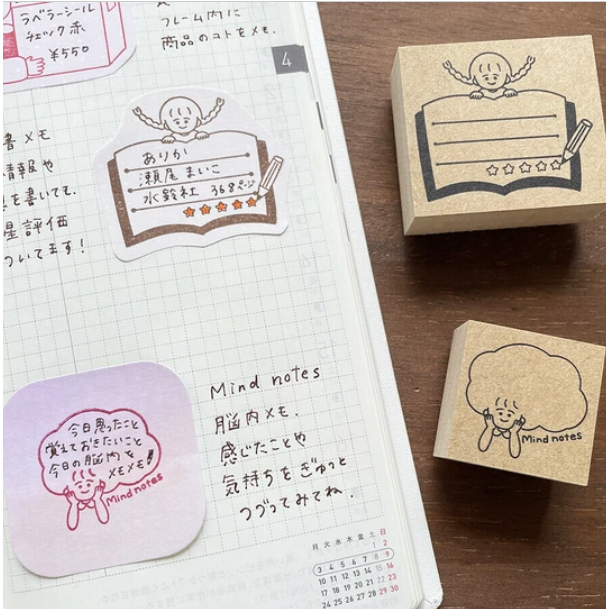 ラベラーシール
チェック 赤
¥550
フレーム内に
商品のコトをメモ.
4
書メモ
情報や
を書いても.
星評価
ついてます!
ありか
瀬尾まいこ
水鈴社 368ページ
今日思ったこと
覚えておきたいこと
今日の脳内を
メモメモ!
Mind notes
Mind notes
脳内メモ.
感じたことや
気持ちをぎゅっと
つづってみてね.
月 火 水 木 金 土 日
1 2
3 4 5 6 7 8 9
10 11 12 13 14 15 16
17 18 19 20 21 22 23
24 25 26 27 28 29 30
Mind notes